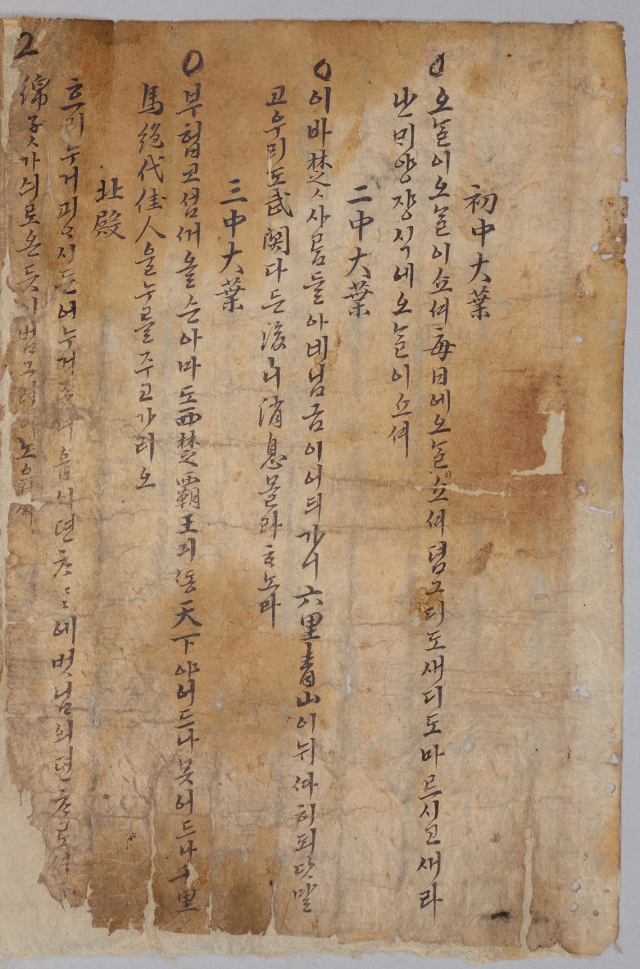 2
初中大葉
오ᄂᆞᆯ이오ᄂᆞᆯ이쇼셔每日에오ᄂᆞᆯ이쇼셔뎜그디도새디도마르시고새라
난ᄆᆡ양쟝식에오ᄂᆞᆯ이쇼셔
二中大葉
이바楚ㅅ사ᄅᆞᆷ들아네님금이어듸가니六里靑山이뉘ᄯᅡ히되닷말
고우리도武関다든後ㅣ니消息몰라ᄒᆞ노라
三中大葉
부협고섬ᄭᅥ올슨아마도西楚覇王긔똥天下야어드나못어드나千里
馬絶代佳人을누를주고가리오
北殿
흐리누거괴오시든어누거 뎐ᄎᆞᄎᆞ에벗님의뎐ᄎᆞ로셔
綿子ㅅ가싀로온듯시범그려 노ᄋᆞᆸ셔